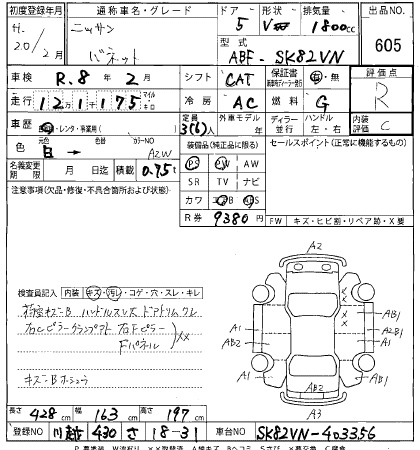 初度登録年月 通称車名・グレード ドア 形状 排気量 出品NO.
H. 20/2月 ニッサン バネット 5 V 1800cc 605
型式 ABF-SK82VN
車検 R.8年2月 シフト CAT 保証書 有・無 評価点 R
走行 12万1千175 マイル キロ 冷房 AC 燃料 G
車歴 自家用・レンタ・事業用( ) 定員 3(6)人 外車モデル 年 ディーラー 並行 ハンドル 左・右 内装評価 C
色 元色 白→ 色替 カラーNO A2W 装備品(純正品に限る) セールスポイント(正常に機能するもの)
名義変更期限 月 日迄 積載 0.75t PS PW AW
SR TV ナビ
注意事項(欠品・修復・不具合箇所および状態) カワ エアB ABS
R券 9380円 FW キズ・ヒビ割・リペア跡・X要
検査員記入 内装 キズ・汚レ・コゲ・穴・スレ・キレ
ハンドルスレ ドアトリムワレ
右Cピラー 右Fピラー
Fパネル XX
キズB
A2
A1 AB1
A1 A2B1
AB2 A1
A1 AB1
AB2
A3
X
X
長さ 428cm 幅 163cm 高さ 197cm
登録NO 川越 430 さ 18-31 車台NO SK82VN-403356